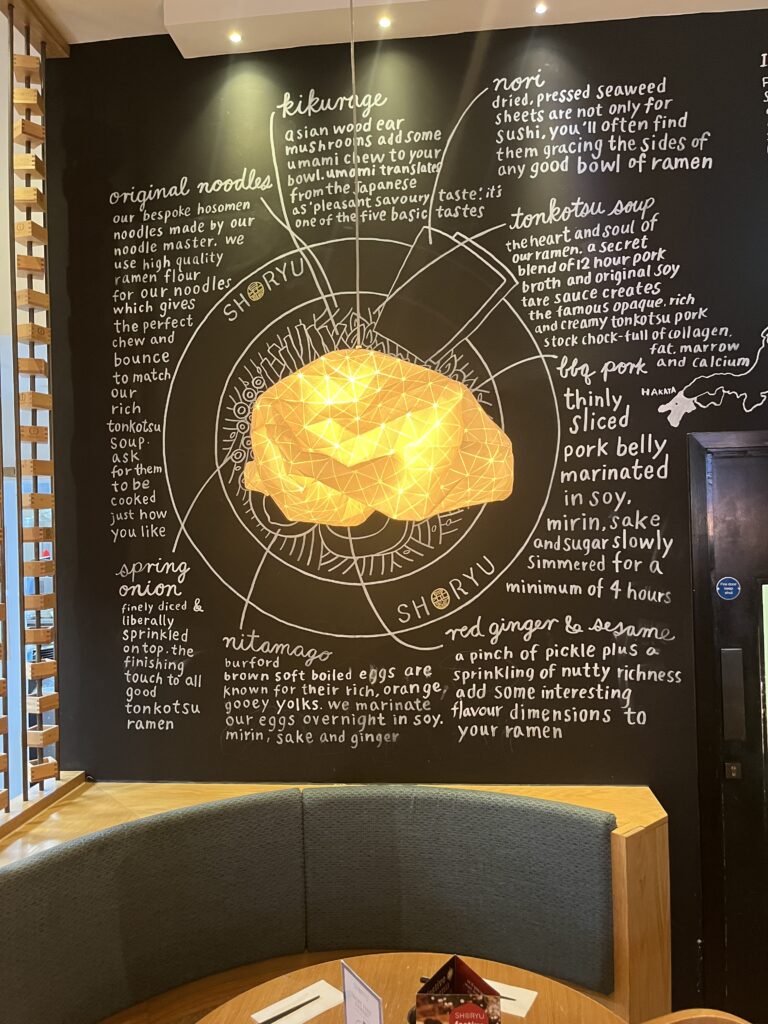 kikurage
asian wood ear
mushrooms add some
umami chew to your
bowl. umami translates
from the Japanese
as 'pleasant savoury taste'. it's
one of the five basic tastes
nori
dried, pressed seaweed
sheets are not only for
sushi, you'll often find
them gracing the sides of
any good bowl of ramen
original noodles
our bespoke hosomen
noodles made by our
noodle master. we
use high quality
ramen flour
for our noodles
which gives
the perfect
chew and
bounce
to match
our
rich
tonkotsu
soup.
ask
for them
to be
cooked
just how
you like
tonkotsu soup
the heart and soul of
our ramen. a secret
blend of 12 hour pork
broth and original soy
tare sauce creates
the famous opaque, rich
and creamy tonkotsu pork
stock chock-full of collagen,
fat, marrow
and calcium
SHORYU
bbq pork
thinly
sliced
pork belly
marinated
in soy,
mirin, sake
and sugar slowly
simmered for a
minimum of 4 hours
HAKATA
SHORYU
spring
onion
finely diced &
liberally
sprinkled
on top. the
finishing
touch to all
good
tonkotsu
ramen
nitamago
burford
brown soft boiled eggs are
known for their rich, orange,
gooey yolks. we marinate
our eggs overnight in soy,
mirin, sake and ginger
red ginger & sesame
a pinch of pickle plus a
sprinkling of nutty richness
add some interesting
flavour dimensions to
your ramen
Fire door
keep
shut
SHORYU